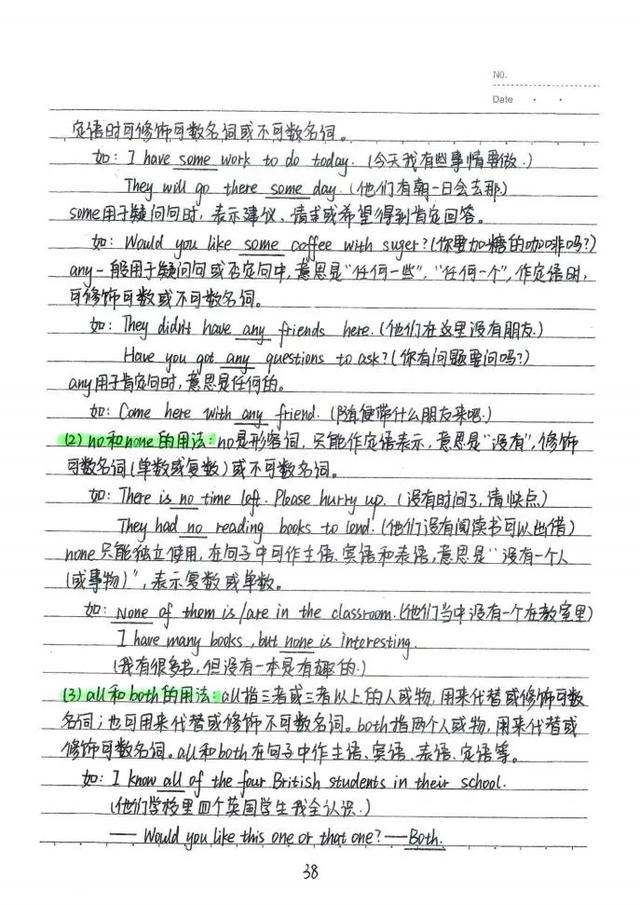 No.
Date
定语时可修饰可数名词或不可数名词。
如: I have some work to do today. (今天我有些事情要做.)
They will go there some day. (他们有朝一日会去那)
some用于疑问句时, 表示建议、请求或希望得到肯定回答。
如: Would you like some coffee with suger? (你要加糖的咖啡吗?)
any一般用于疑问句或否定句中, 意思是“任何一些”, “任何一个”, 作定语时,
可修饰可数或不可数名词。
如: They didn't have any friends here. (他们在这里没有朋友.)
Have you got any questions to ask? (你有问题要问吗?)
any用于肯定句时, 意思是任何的。
如: Come here with any friend. (随便带什么朋友来吧.)
(2) no和none的用法: no是形容词, 只能作定语表示, 意思是“没有”, 修饰
可数名词(单数或复数)或不可数名词。
如: There is no time left. Please hurry up. (没有时间了, 请快点)
They had no reading books to lend. (他们没有阅读书可以出借)
none只能独立使用, 在句子中可作主语、宾语和表语, 意思是“没有一个人
(或事物)”, 表示复数或单数。
如: None of them is/are in the classroom. (他们当中没有一个在教室里)
I have many books, but none is interesting.
(我有很多书, 但没有一本是有趣的.)
(3) all和both的用法: all指三者或三者以上的人或物, 用来代替或修饰可数
名词; 也可用来代替或修饰不可数名词。both指两个人或物, 用来代替或
修饰可数名词。all和both在句子中作主语、宾语、表语、定语等。
如: I know all of the four British students in their school.
(他们学校里四个英国学生我全认识.)
—— Would you like this one or that one? —— Both.
38